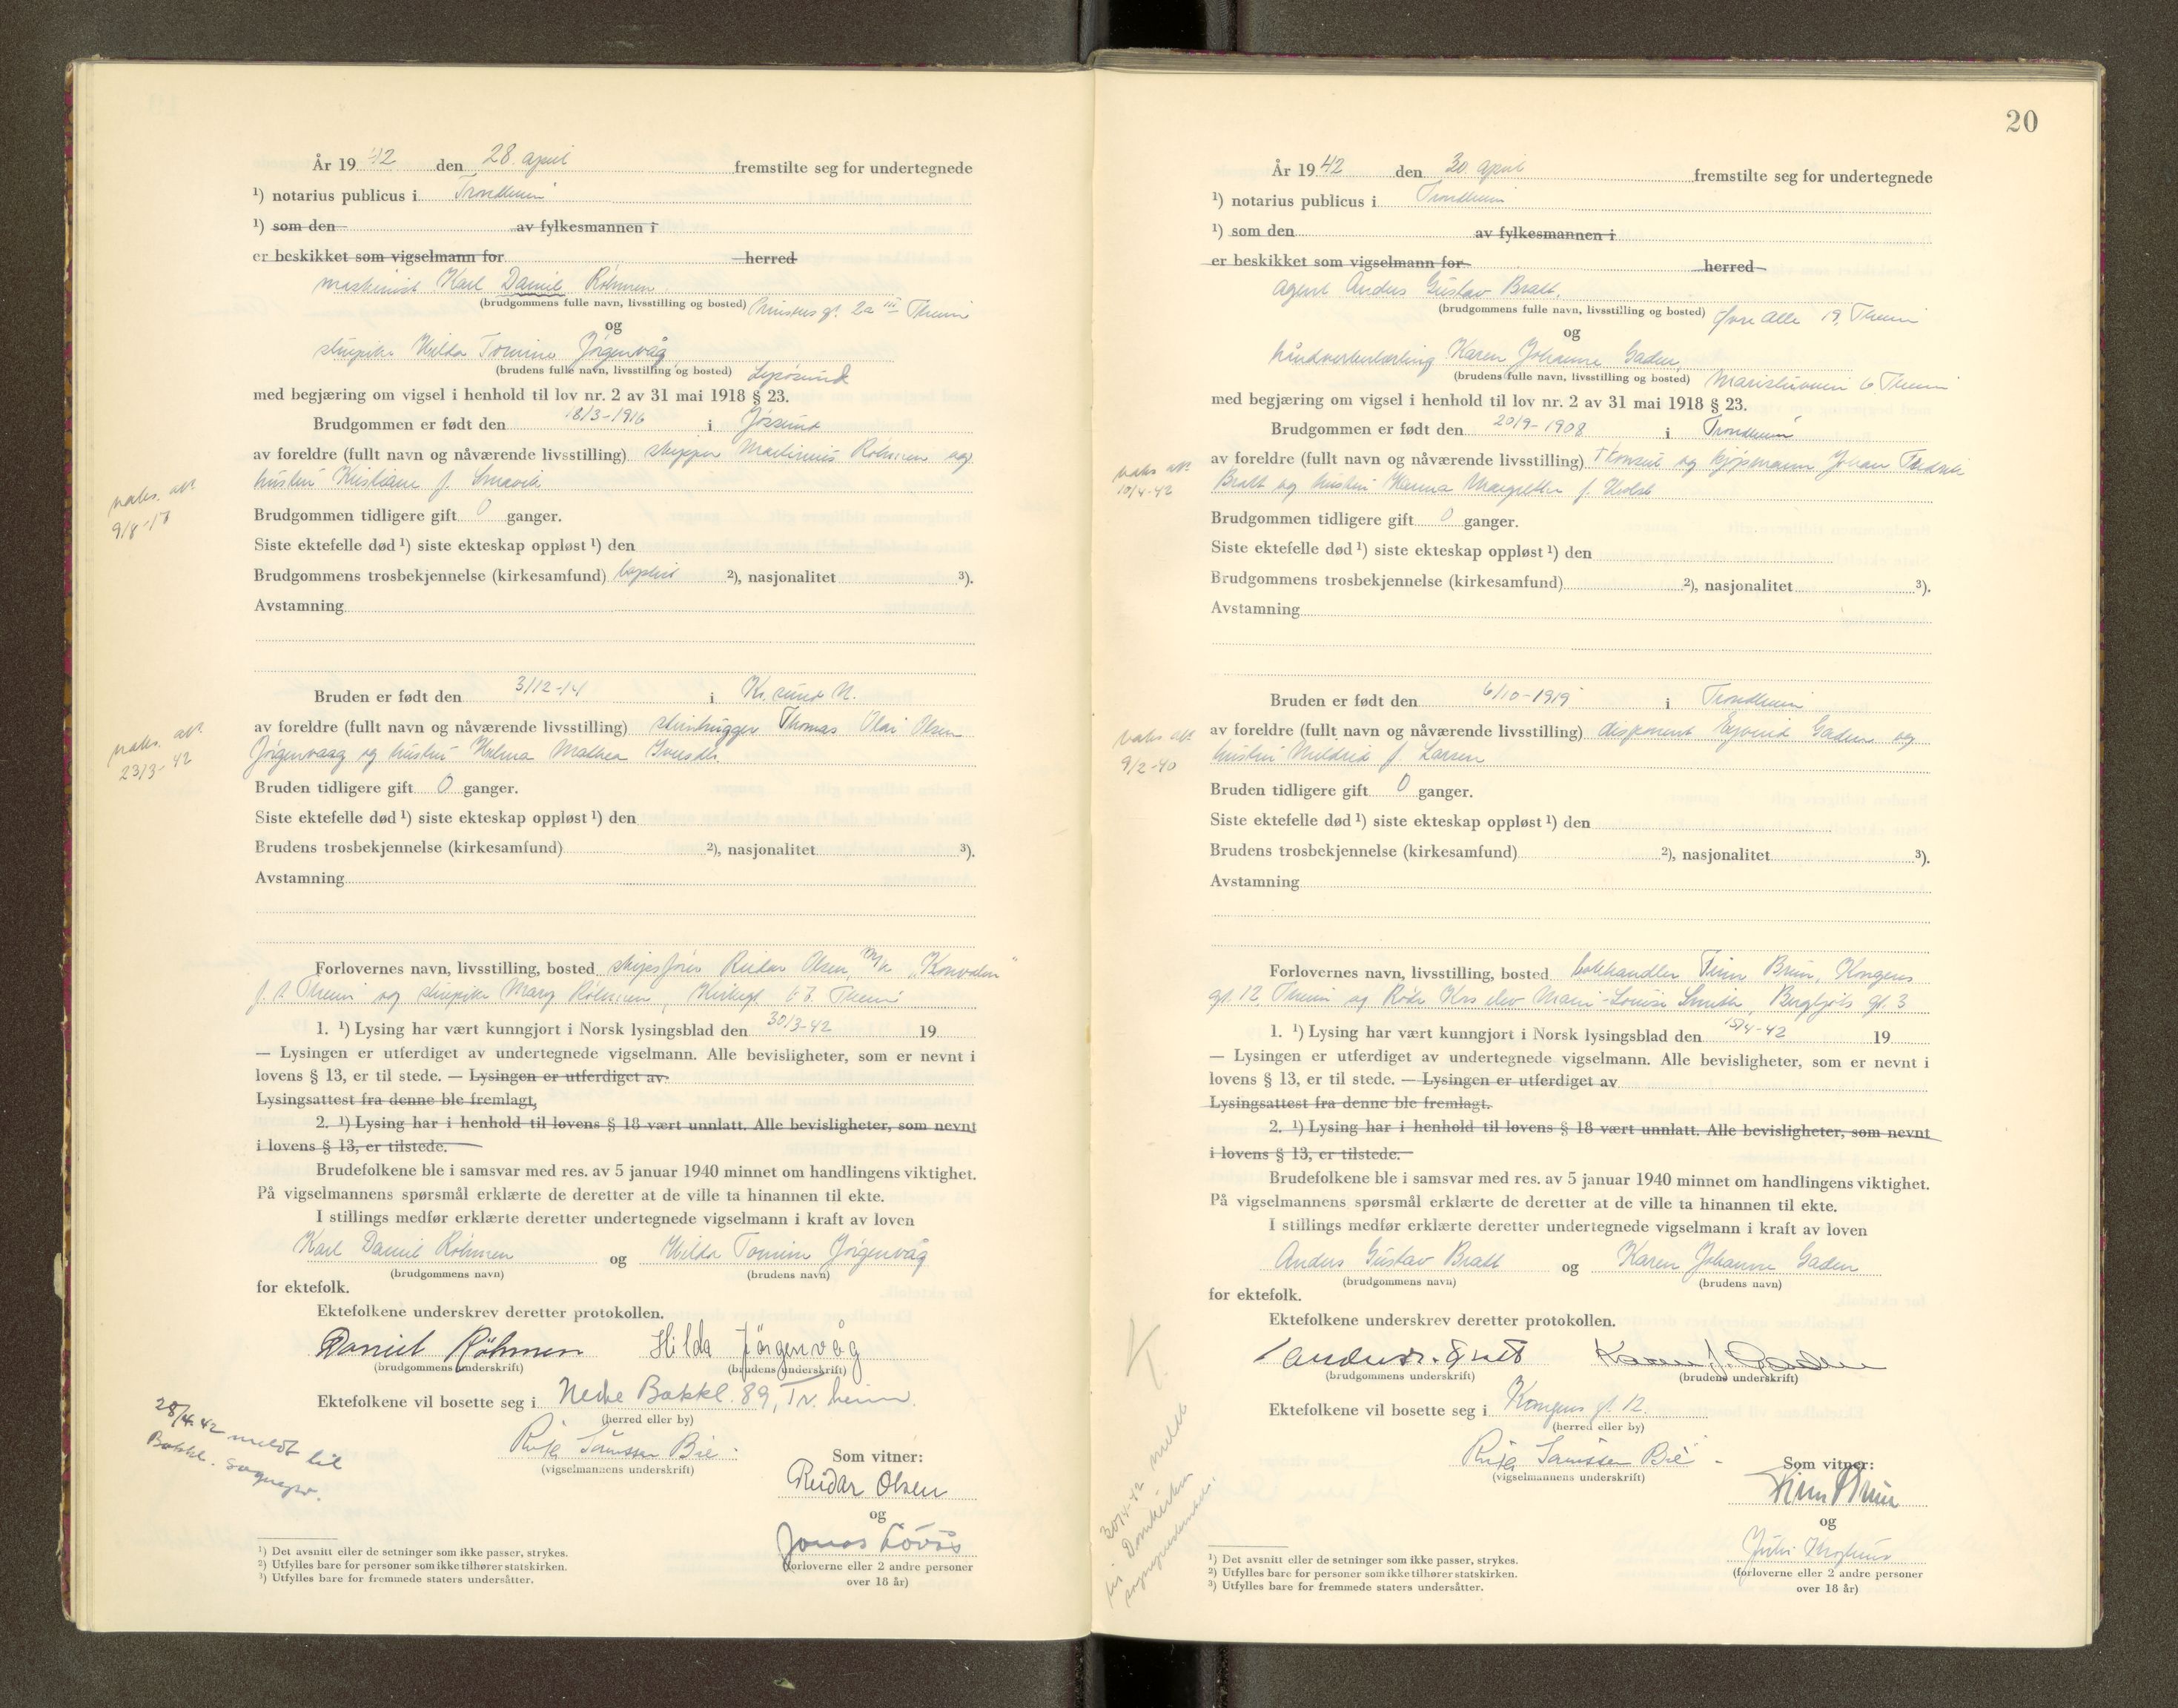 År 19 42 den 28. april fremstilte seg for undertegnede
¹) notarius publicus i Trondheim
¹) som den av fylkesmannen i
er beskikket som vigselmann for herred
maskinist Karl Daniel Röhmen
(brudgommens fulle navn, livsstilling og bosted) gt. 2a III Theim
og
Hilda Tomine Jørgenvåg
(brudens fulle navn, livsstilling og bosted) Lysøsund
med begjæring om vigsel i henhold til lov nr. 2 av 31 mai 1918 § 23.
Brudgommen er født den 18/3-1916 i Jøssund
av foreldre (fullt navn og nåværende livsstilling) skipper Martinius Röhmen og
hustru Kristiane f. Smavik
vaks. att.
Brudgommen tidligere gift 0 ganger.
Siste ektefelle død ¹) siste ekteskap oppløst ¹) den
Brudgommens trosbekjennelse (kirkesamfund) baptist ²), nasjonalitet ³).
Avstamning
Bruden er født den 3/12-14 i Kr.sund N.
av foreldre (fullt navn og nåværende livsstilling) steinhugger Thomas Olai Olsen
Jørgenvaag og hustru Helma Mathea
vaks. att.
23/3-42
Bruden tidligere gift 0 ganger.
Siste ektefelle død ¹) siste ekteskap oppløst ¹) den
Brudens trosbekjennelse (kirkesamfund) ²), nasjonalitet ³).
Avstamning
Forlovernes navn, livsstilling, bosted skipsfører Reidar Olsen, "Konvalen"
Theim og Mary Röhmen, Theim
1. ¹) Lysing har vært kunngjort i Norsk lysingsblad den 30/3-42 19
— Lysingen er utferdiget av undertegnede vigselmann. Alle bevisligheter, som er nevnt i
lovens § 13, er til stede. — Lysingen er utferdiget av
Lysingsattest fra denne ble fremlagt,
2. ¹) Lysing har i henhold til lovens § 18 vært unnlatt. Alle bevisligheter, som nevnt
i lovens § 13, er tilstede.
Brudefolkene ble i samsvar med res. av 5 januar 1940 minnet om handlingens viktighet.
På vigselmannens spørsmål erklærte de deretter at de ville ta hinannen til ekte.
I stillings medfør erklærte deretter undertegnede vigselmann i kraft av loven
Karl Daniel Röhmen og Hilda Tomine Jørgenvåg
(brudgommens navn) (brudens navn)
for ektefolk.
Ektefolkene underskrev deretter protokollen.
Daniel Röhmen Hilda Jørgenvåg
(brudgommens underskrift) (brudens underskrift)
Ektefolkene vil bosette seg i Nedre Bakkl. 89, Tr.heim.
(herred eller by)
28/4.42 meldt til
Bakkl. sognepr.
(vigselmannens underskrift)
Som vitner:
Reidar Olsen
og
Jonas Lövås
(forloverne eller 2 andre personer
over 18 år)
¹) Det avsnitt eller de setninger som ikke passer, strykes.
²) Utfylles bare for personer som ikke tilhører statskirken.
³) Utfylles bare for fremmede staters undersåtter.
20
År 19 42 den 30. april fremstilte seg for undertegnede
¹) notarius publicus i Trondheim
¹) som den av fylkesmannen i
er beskikket som vigselmann for herred
agent Anders Gustav Bratt,
(brudgommens fulle navn, livsstilling og bosted) Øvre Alle 19, Theim
og
håndverkerlærling Karen Johanne Gaden,
(brudens fulle navn, livsstilling og bosted) 6 Theim
med begjæring om vigsel i henhold til lov nr. 2 av 31 mai 1918 § 23.
Brudgommen er født den 20/9-1908 i Trondheim
av foreldre (fullt navn og nåværende livsstilling) konsul og kjøpmann Johan Fredrik
Bratt og hustru Margrethe f. Holst
vaks att.
10/4-42
Brudgommen tidligere gift 0 ganger.
Siste ektefelle død ¹) siste ekteskap oppløst ¹) den
Brudgommens trosbekjennelse (kirkesamfund) ²), nasjonalitet ³).
Avstamning
Bruden er født den 6/10-1919 i Trondheim
av foreldre (fullt navn og nåværende livsstilling) disponent Eyvind Gaden og
hustru Meldrid f. Larsen
vaks att.
9/2-40
Bruden tidligere gift 0 ganger.
Siste ektefelle død ¹) siste ekteskap oppløst ¹) den
Brudens trosbekjennelse (kirkesamfund) ²), nasjonalitet ³).
Avstamning
Forlovernes navn, livsstilling, bosted bokhandler Finn Brun, Kongens
gt. 12, Theim og Røde Krs elev Louise Smith, gt. 3
1. ¹) Lysing har vært kunngjort i Norsk lysingsblad den 15/4-42 19
— Lysingen er utferdiget av undertegnede vigselmann. Alle bevisligheter, som er nevnt i
lovens § 13, er til stede. — Lysingen er utferdiget av
Lysingsattest fra denne ble fremlagt.
2. ¹) Lysing har i henhold til lovens § 18 vært unnlatt. Alle bevisligheter, som nevnt
i lovens § 13, er tilstede.
Brudefolkene ble i samsvar med res. av 5 januar 1940 minnet om handlingens viktighet.
På vigselmannens spørsmål erklærte de deretter at de ville ta hinannen til ekte.
I stillings medfør erklærte deretter undertegnede vigselmann i kraft av loven
Anders Gustav Bratt og Karen Johanne Gaden
(brudgommens navn) (brudens navn)
for ektefolk.
Ektefolkene underskrev deretter protokollen.
Karen J. Gaden
(brudgommens underskrift) (brudens underskrift)
Ektefolkene vil bosette seg i Kongens gt. 12.
(herred eller by)
30/4-42 meldt
til Domkirken
(vigselmannens underskrift)
Som vitner:
Finn Brun
og
(forloverne eller 2 andre personer
over 18 år)
¹) Det avsnitt eller de setninger som ikke passer, strykes.
²) Utfylles bare for personer som ikke tilhører statskirken.
³) Utfylles bare for fremmede staters undersåtter.